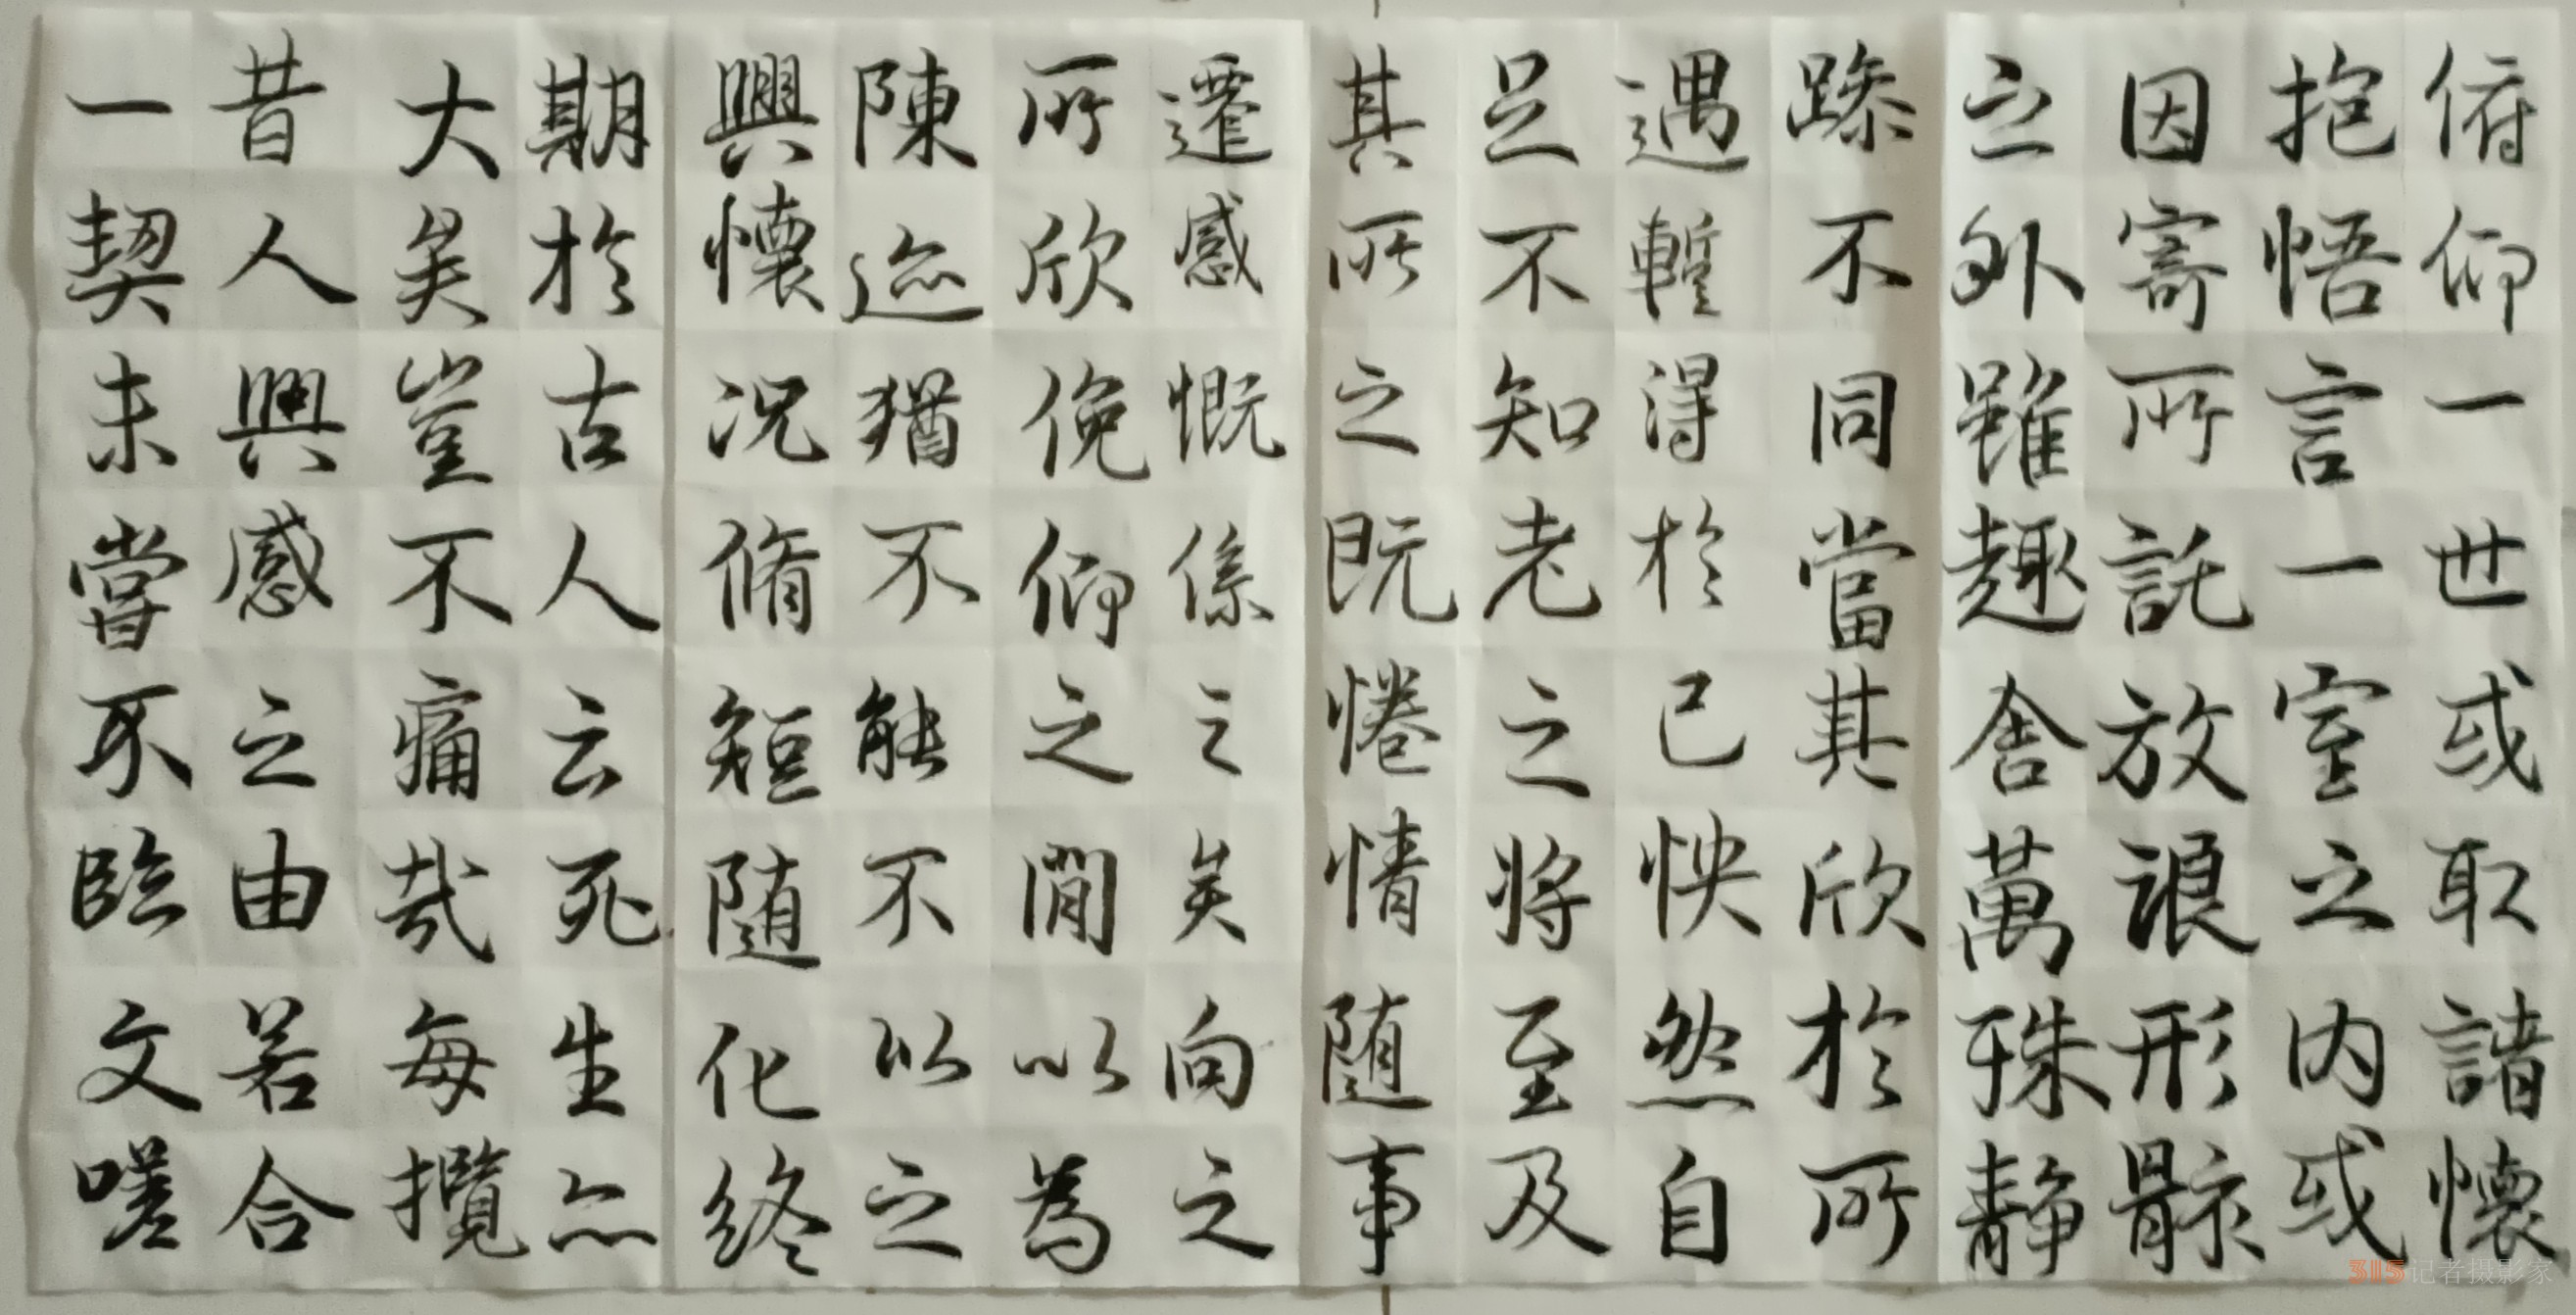 俯仰一世或取諸懷
抱悟言一室之内或
因寄所託放浪形骸
之外雖趣舍萬殊静
躁不同當其欣於所
遇暫得於己怏然自
足不知老之將至及
其所之既惓情随事
遷感慨係之矣向之
所欣俛仰之間以為
陳迹猶不能不以之
興懷況脩短随化終
期於古人云死生亦
大矣豈不痛哉每攬
昔人興感之由若合
一契未嘗不臨文嗟
315记者摄影家